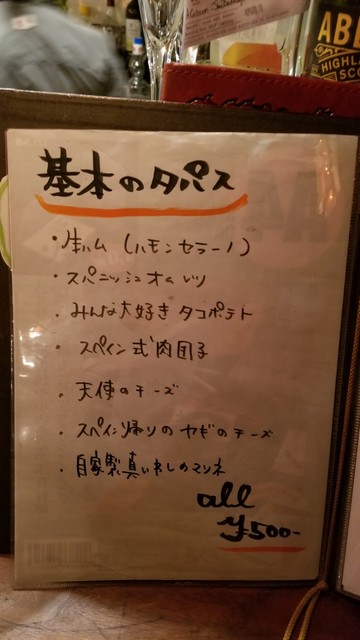 ABE
HIGHLA
SCO
基本のタパス
・生ハム (ハモンセラーノ)
・スパニッシュオムレツ
・みんな大好き タコポテト
・スペイン式肉団子
・天使のチーズ
・スペイン帰りのヤギのチーズ
・自家製真いわしのマリネ
all
¥500-